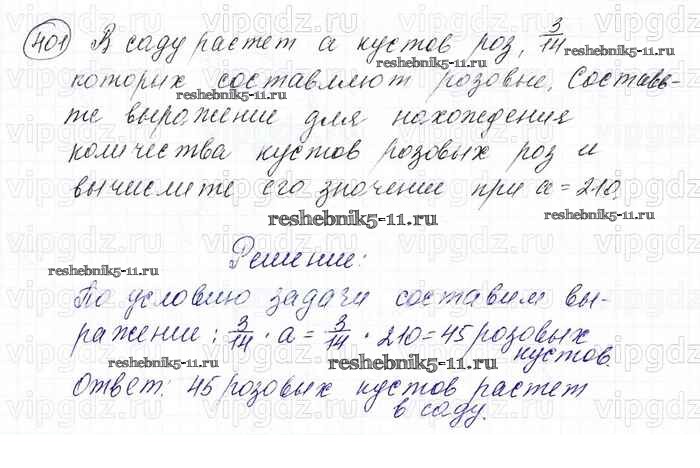 401 В саду растет a кустов роз, 3/14
которых составляют розовые. Составь-
те выражение для нахождения
количества кустов розовых роз и
вычислите его значении при a = 210.
Решение:
По условию задачи составим вы-
ражении: 3/14 · a = 3/14 · 210 = 45 розовых
кустов.
Ответ: 45 розовых кустов растет
в саду.
vipgdz.ru
reshebnik5-11.ru